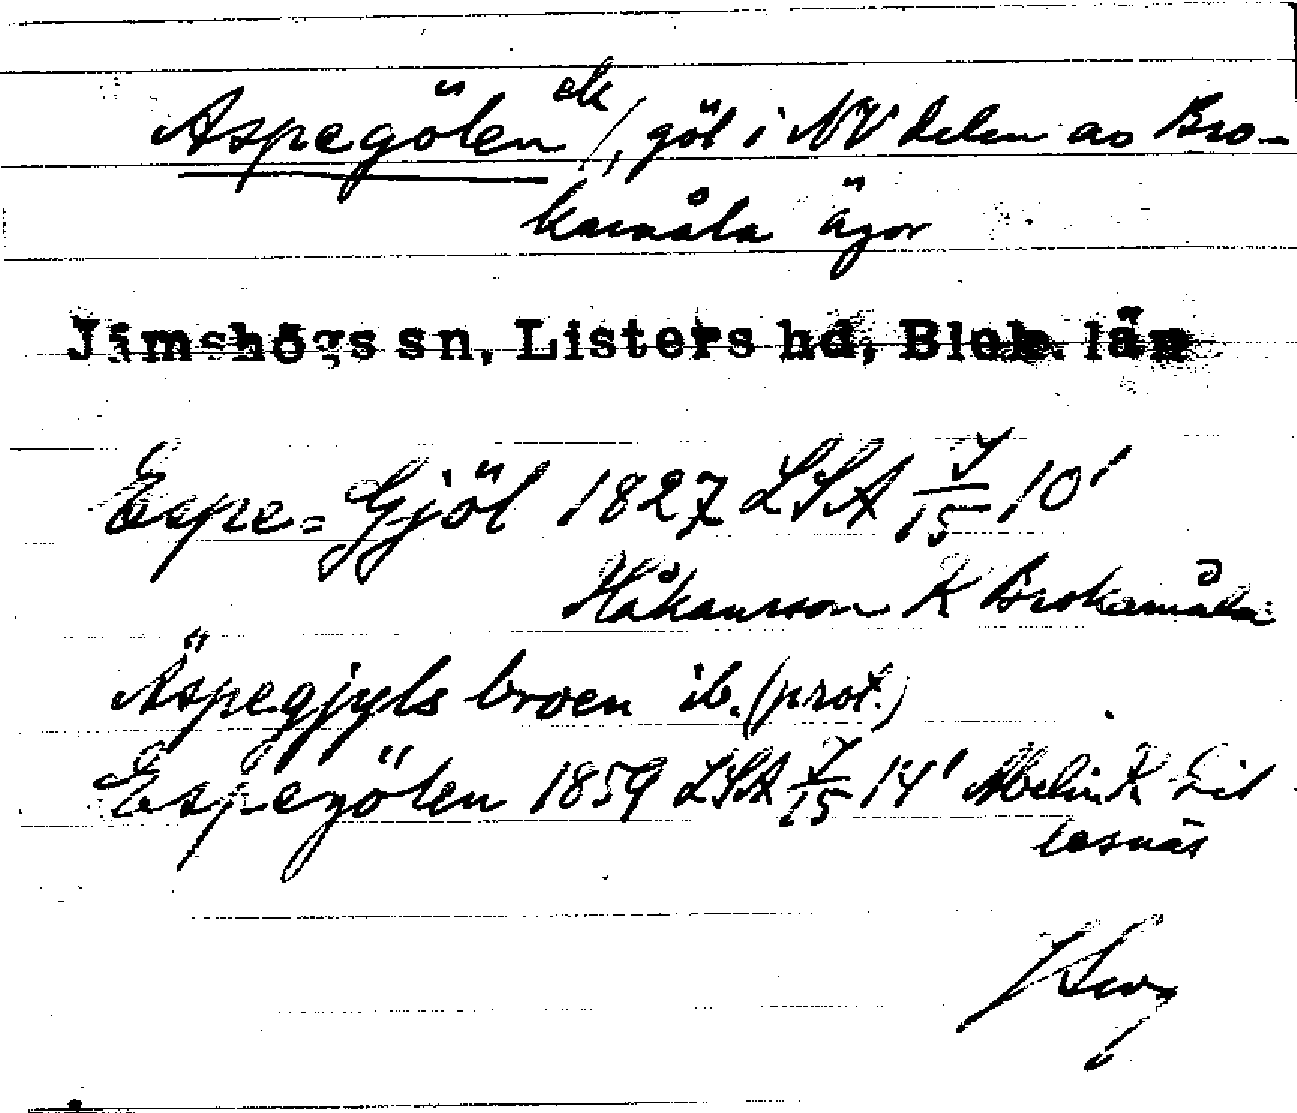 Aspegölen ek/, göl i NV delen av Bro-
kamåla ägor
Jämshögs sn, Listers hd, Blek. län
Espe=Gjöl 1827 LSA J/15 10'
Håkansson K Brokamåla
Äspegjyls broen ib. (prot.)
Espegölen 1859 LSA J/15 14' Abelin K Lil
lesnäs